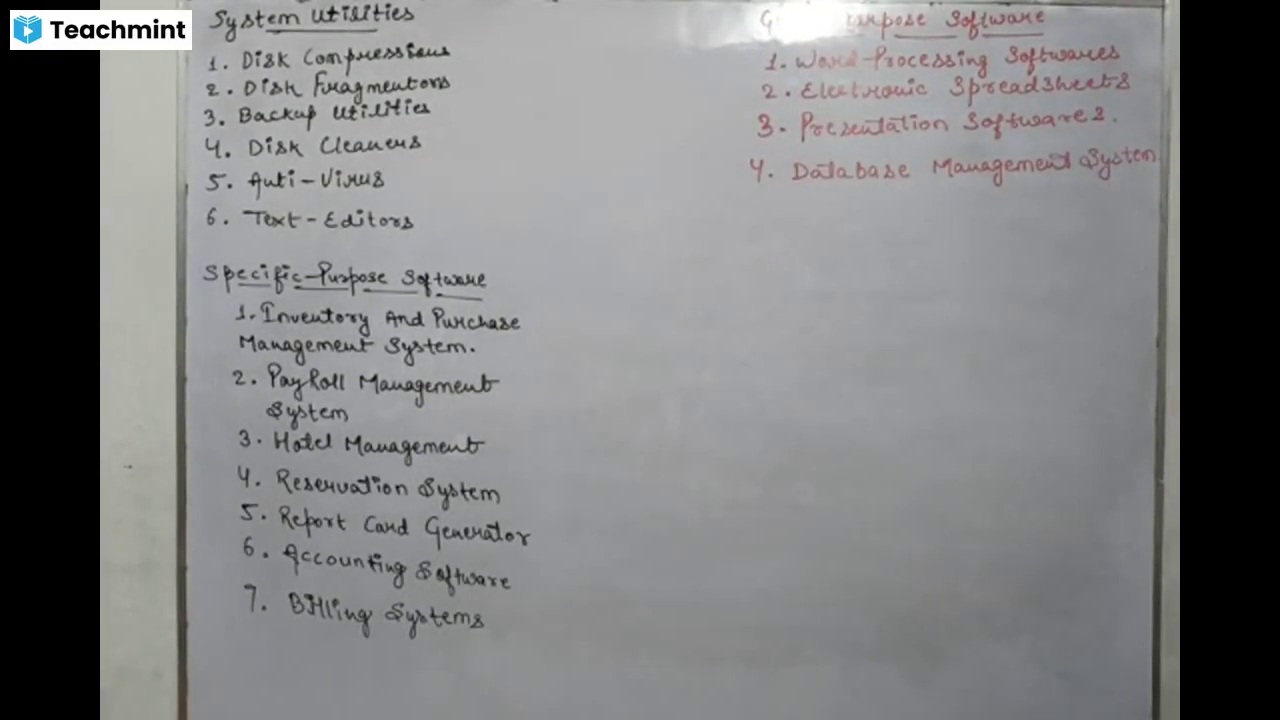 Teachmint
System Utilities
1. Disk Compressions
2. Disk Fragmentors
3. Backup Utilities
4. Disk Cleaners
5. Anti-Virus
6. Text-Editors
Specific-Purpose Software
1. Inventory And Purchase
Management System.
2. PayRoll Management
System
3. Hotel Management
4. Reservation System
5. Report Card Generator
6. Accounting Software
7. Billing Systems
Software
1. Word-Processing Softwares
2. Electronic Spreadsheets
3. Presentation Softwares.
4. Database Management System